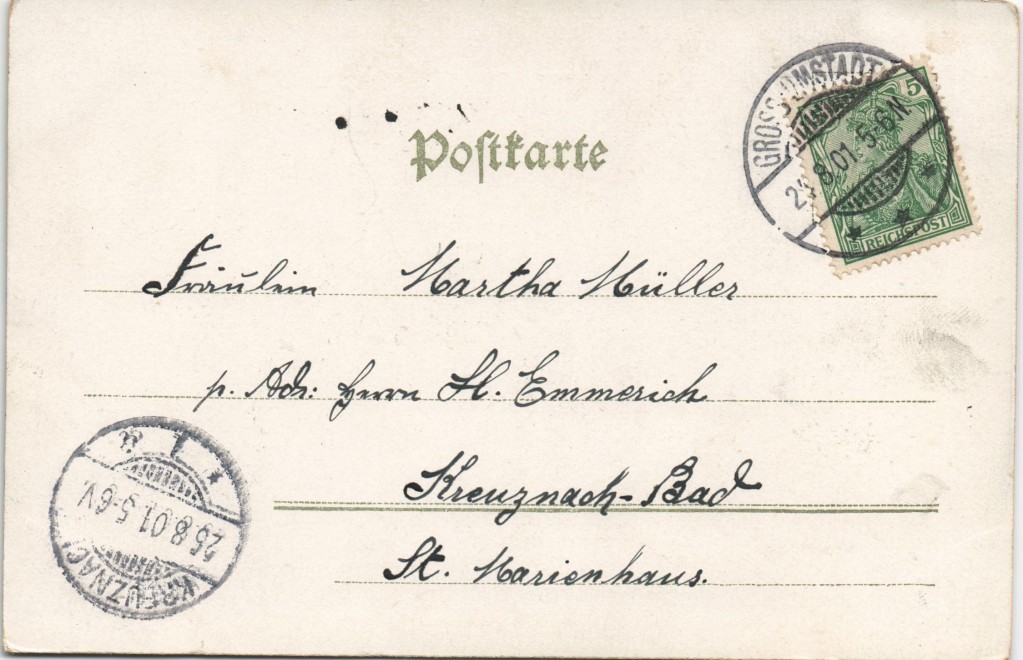 Postkarte
GROSS-UMSTADT
5-6N
8.01.
5
REICHSPOST
Fräulein Martha Müller
p. Adr: Herrn H. Emmerich
Kreuznach-Bad
St. Marienhaus.
26.8.01.5-6V.
KREUZNACH